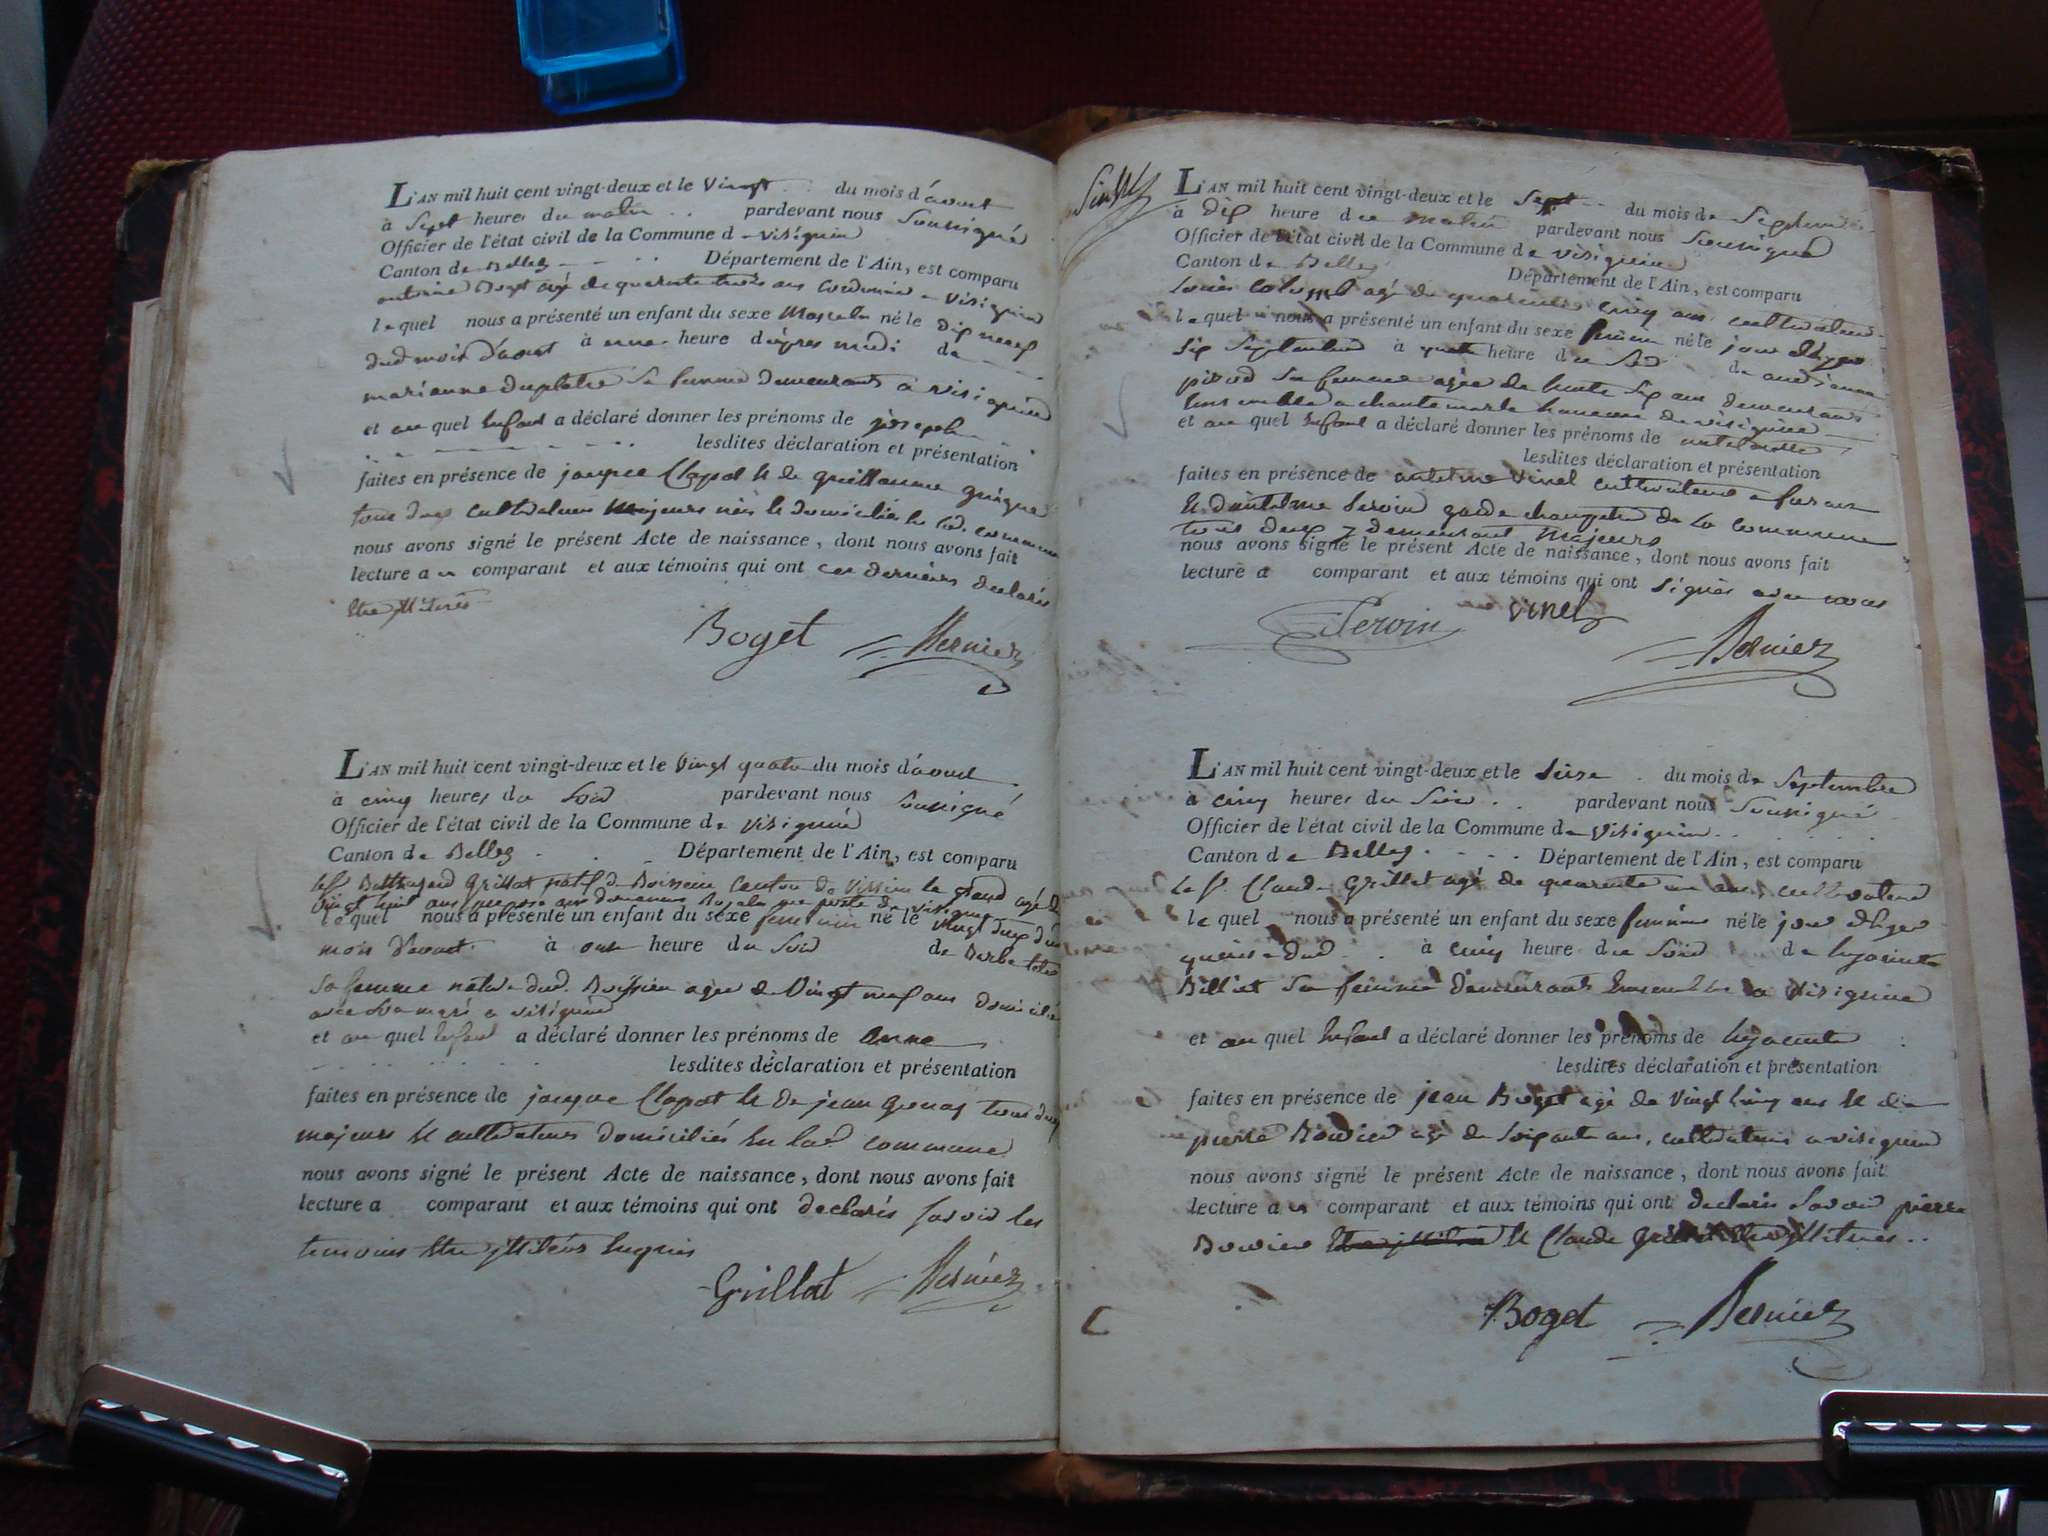 L'AN mil huit cent vingt-deux et le Vingt du mois d'aoust
à Sept heures du matin pardevant nous Soussigné
Officier de l'état civil de la Commune de visignin
Canton de Belley Département de l'Ain, est comparu
antoine Boget agé de quarente trois ans Cordonnier a Visignin
lequel nous a présenté un enfant du sexe Masculin né le dix neuf
dud mois d'aoust à une heure d'apres midi de
marianne duplatre Sa femme demeurants a visignin
et au quel Enfant a déclaré donner les prénoms de joseph
lesdites déclaration et présentation
faites en présence de jacque Clapot et de guillaume
tous deux cultivateurs Majeurs domiciliés commune
nous avons signé le présent Acte de naissance, dont nous avons fait
lecture au comparant et aux témoins qui ont ces derniers declarés
Etre illiterés
Boget Bernier
L'AN mil huit cent vingt-deux et le Vingt quatre du mois d'aoust
à cinq heures du Soir pardevant nous Soussigné
Officier de l'état civil de la Commune de visignin
Canton de Belley Département de l'Ain, est comparu
le Sr. Grillat natif de Canton de le grand agé de
Vingt huit ans aux douanes Royales au poste de visignin
lequel nous a présenté un enfant du sexe feminin né le Vingt deux du
mois d'aoust à onze heure du Soir de
Sa femme native dud. agée de Vingt neuf ans domiciliée
avec Son mari a visignin
et au quel Enfant a déclaré donner les prénoms de anne
lesdites déclaration et présentation
faites en présence de jacque Clapot et de jean tous deux
majeurs et cultivateurs domiciliés En lad. commune
nous avons signé le présent Acte de naissance, dont nous avons fait
lecture a comparant et aux témoins qui ont declarés Savoir les
temoins Etre illiterés Enquis
Grillat Bernier
L'AN mil huit cent vingt-deux et le Sept du mois de Septembre
à dix heure du matin pardevant nous Soussigné
Officier de l'état civil de la Commune de visignin
Canton de Belley Département de l'Ain, est comparu
agé de quarente cinq ans cultivateur
lequel nous a présenté un enfant du sexe feminin né le jour d'hyer
Six Septembre à quatre heure du Soir de
Sa femme agée de trente Six ans demeurants
Ensemble a chantemerle hameau de visignin
et au quel Enfant a déclaré donner les prénoms de
lesdites déclaration et présentation
faites en présence de antelme Vinet cultivateur a
Et d'antelme Servin garde champetre de La commune
tous deux y demeurant Majeurs
nous avons signé le présent Acte de naissance, dont nous avons fait
lecture a comparant et aux témoins qui ont signés avec nous
Servin vinet
Bernier
L'AN mil huit cent vingt-deux et le Seize du mois de Septembre
à cinq heures du Soir pardevant nous Soussigné
Officier de l'état civil de la Commune de Visignin
Canton de Belley Département de l'Ain, est comparu
Le Sr. Claude Grillet agé de quarente un ans cultivateur
lequel nous a présenté un enfant du sexe feminin né le jour d'hyer
quinze dud à cinq heure du Soir de hyacinte
Billiet Sa femme demeurants Ensemble a visignin
et au quel Enfant a déclaré donner les prénoms de hyacinte
lesdites déclaration et présentation
faites en présence de jean Boget agé de Vingt cinq ans Et de
pierre Bouvier agé de Soixante ans, cultivateurs a visignin
nous avons signé le présent Acte de naissance, dont nous avons fait
lecture au comparant et aux témoins qui ont declarés Savoir pierre
Bouvier Et Claude Grillet Etre illiterés
Boget Bernier